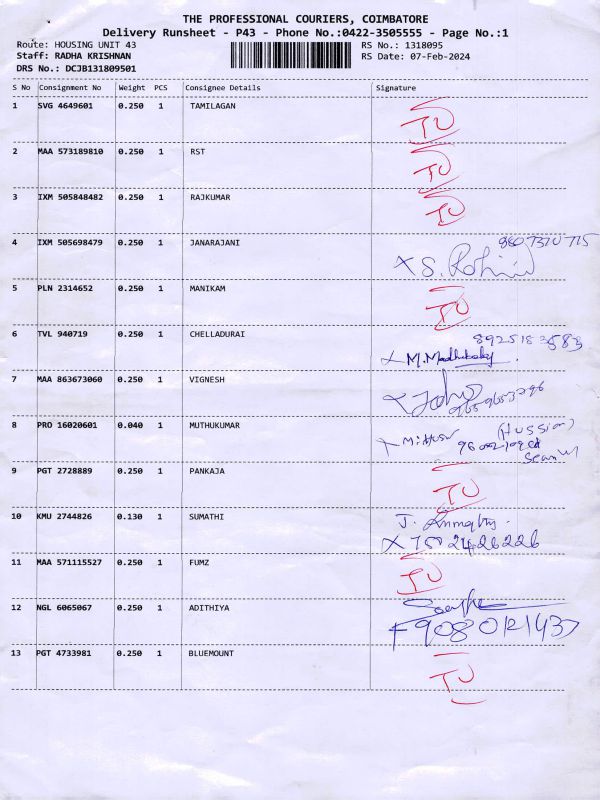 THE PROFESSIONAL COURIERS, COIMBATORE
Delivery Runsheet - P43 - Phone No.:0422-3505555 - Page No.:1
Route: HOUSING UNIT 43 RS No.: 1318095
Staff: RADHA KRISHNAN RS Date: 07-Feb-2024
DRS No.: DCJB131809501
S No Consignment No Weight PCS Consignee Details Signature
1 SVG 4649601 0.250 1 TAMILAGAN TU
2 MAA 573189810 0.250 1 RST TU
3 IXM 505848482 0.250 1 RAJKUMAR TU
4 IXM 505698479 0.250 1 JANARAJANI
X S. Rohini
5 PLN 2314652 0.250 1 MANIKAM TU
6 TVL 940719 0.250 1 CHELLADURAI 8925183583
7 MAA 863673060 0.250 1 VIGNESH
8 PRO 16020601 0.040 1 MUTHUKUMAR (HUSSION)
9 PGT 2728889 0.250 1 PANKAJA TU
10 KMU 2744826 0.130 1 SUMATHI J.
X 7502426226
11 MAA 571115527 0.250 1 FUMZ TU
12 NGL 6065067 0.250 1 ADITHIYA
13 PGT 4733981 0.250 1 BLUEMOUNT TU